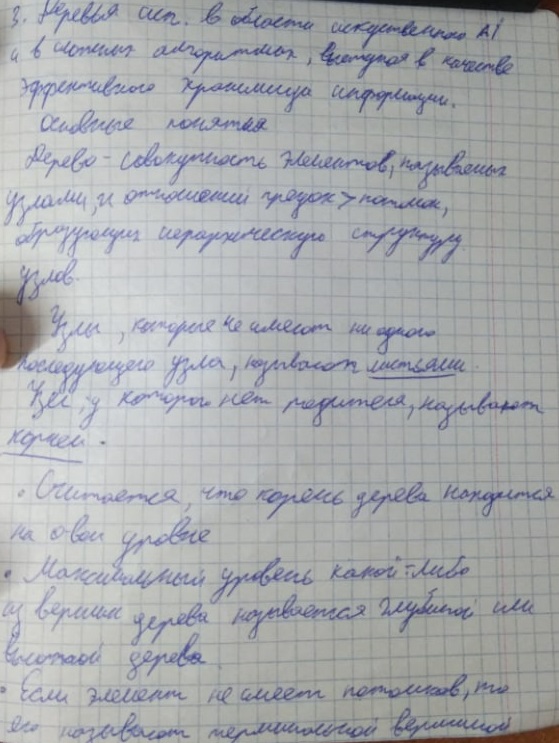 3. Деревья исп. в области искуственного AI
и в сложных алгоритмах, выступая в качестве
эффективного хранилища информации.
Основные понятия
Дерево - совокупность элементов, называемых
узлами, и отношений предок > потомок,
образующих иерархическую структуру
узлов.
Узлы, которые не имеют ни одного
последующего узла, называют листьями.
Узел, у которого нет родителя, называют
корнем.
• Считается, что корень дерева находится
на 0-вом уровне
• Максимальный уровень какой-либо
из вершин дерева называется глубиной или
высотой дерева.
• Если элемент не имеет потомков, то
его называют терминальной вершиной